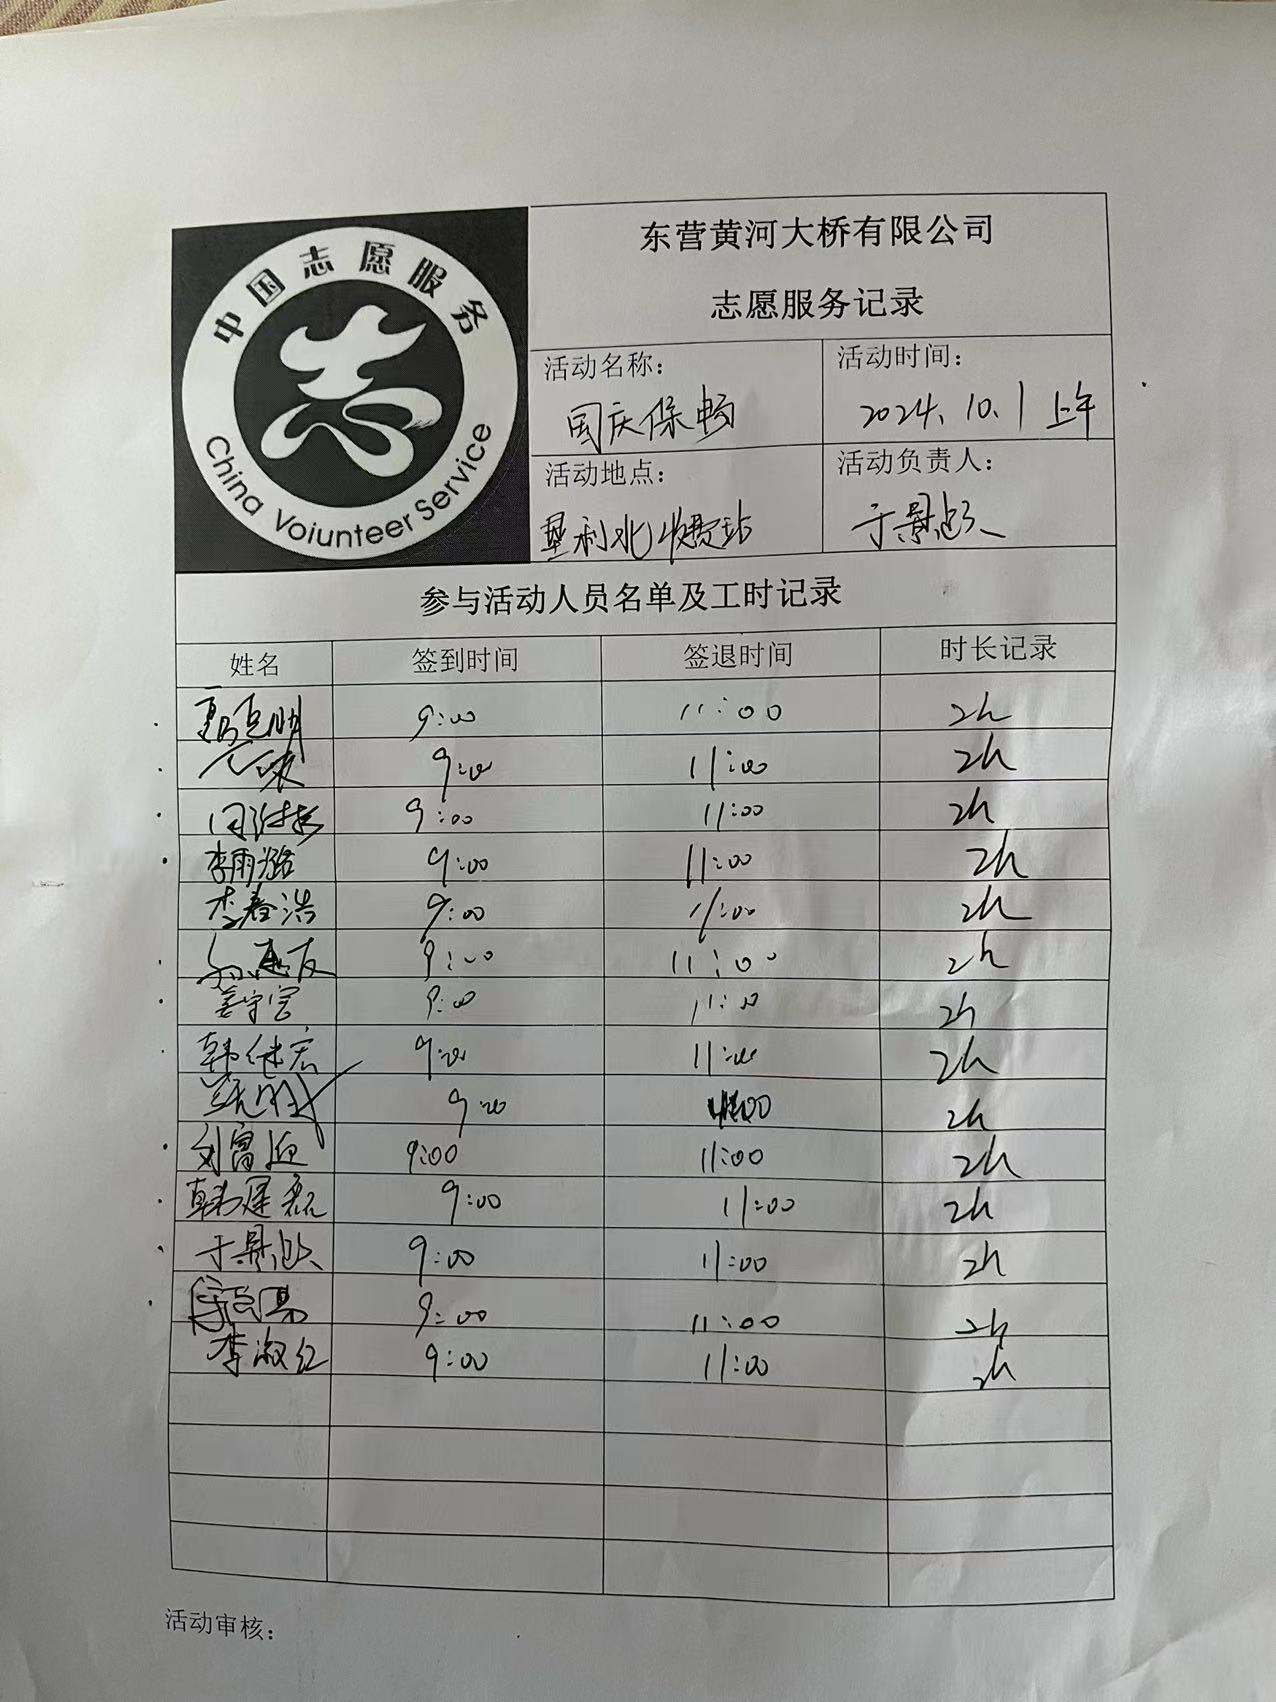 中国志愿服务
China Voiunteer Service
东营黄河大桥有限公司
志愿服务记录
活动名称：
国庆保畅
活动时间：
2024.10.1上午
活动地点：
垦利北收费站
活动负责人：
于景
参与活动人员名单及工时记录
姓名 签到时间 签退时间 时长记录
9:00 11:00 2h
9:00 11:00 2h
9:00 11:00 2h
李雨潞 9:00 11:00 2h
李春浩 9:00 11:00 2h
9:00 11:00 2h
姜守宫 9:00 11:00 2h
韩继宏 9:00 11:00 2h
9:00 11:00 2h
刘富迎 9:00 11:00 2h
韩建磊 9:00 11:00 2h
于景 9:00 11:00 2h
9:00 11:00 2h
李淑红 9:00 11:00 2h
活动审核：